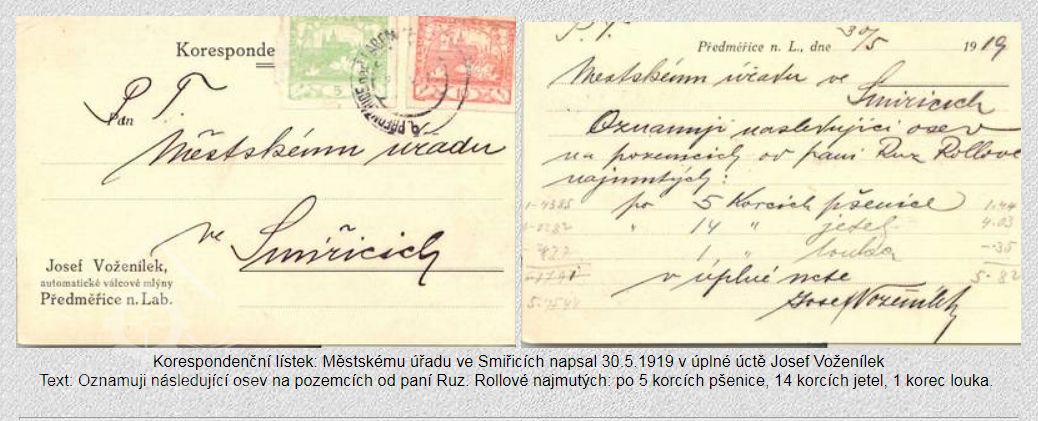 Koresponde
P. T.
Pán
Městskému úřadu
ve Smiřicích
Josef Voženílek,
automatické válcové mlýny
Předměřice n. Lab.
5
10
P. T.
Předměřice n. L., dne 30/5 1919
Městskému úřadu ve
Smiřicích
Oznamuji následující osev
na pozemcích od paní Ruz Rollové
najmutých:
po 5 Korcích pšenice 1.44
" 14 " jetel 4.03
1 " louka -.35
v úplné úctě 5.82
Josef Voženílek
Korespondenční lístek: Městskému úřadu ve Smiřicích napsal 30.5.1919 v úplné úctě Josef Voženílek
Text: Oznamuji následující osev na pozemcích od paní Ruz. Rollové najmutých: po 5 korcích pšenice, 14 korcích jetel, 1 korec louka.